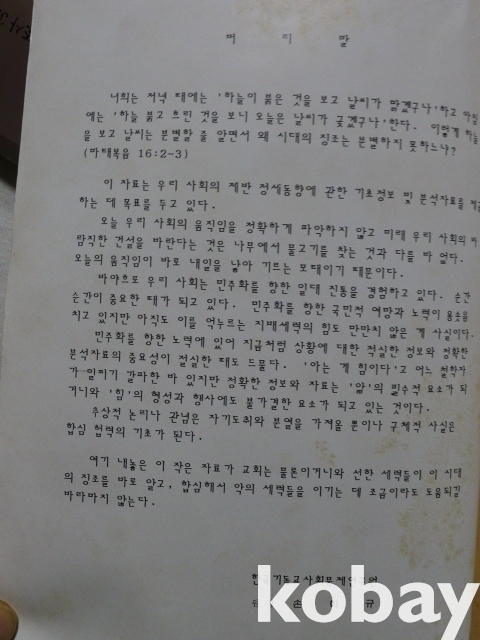 머 리 말
너희는 저녁 때에는 '하늘이 붉은 것을 보고 날씨가 맑겠구나'하고 아침
에는 '하늘 붉고 흐린 것을 보니 오늘은 날씨가 궂겠구나'한다. 이렇게 하늘
을 보고 날씨는 분별할 줄 알면서 왜 시대의 징조는 분별하지 못하느냐?
(마태복음 16:2-3)
이 자료는 우리 사회의 제반 정세동향에 관한 기초정보 및 분석자료를 제공
하는 데 목표를 두고 있다.
오늘 우리 사회의 움직임을 정확하게 파악하지 않고 미래 우리 사회의 바
람직한 건설을 바란다는 것은 나무에서 물고기를 찾는 것과 다를 바 없다.
오늘의 움직임이 바로 내일을 낳아 기르는 모태이기 때문이다.
바야흐로 우리 사회는 민주화를 향한 일대 진통을 경험하고 있다. 순간
순간이 중요한 때가 되고 있다. 민주화를 향한 국민적 여망과 노력이 용솟음
치고 있지만 아직도 이를 억누르는 지배세력의 힘도 만만치 않은 게 사실이다.
민주화를 향한 노력에 있어 지금처럼 상황에 대한 적실한 정보와 정확한
분석자료의 중요성이 절실한 때도 드물다. '아는 게 힘이다'고 어느 철학자
가 일찌기 갈파한 바 있지만 정확한 정보와 자료는 '앎'의 필수적 요소가 되
거니와 '힘'의 형성과 행사에도 불가결한 요소가 되고 있는 것이다.
추상적 논리나 관념은 자기도취와 분열을 가져올 뿐이나 구체적 사실은
합심 협력의 기초가 된다.
여기 내놓은 이 작은 자료가 교회는 물론이거니와 선한 세력들이 이 시대
의 징조를 바로 알고, 합심해서 악의 세력들을 이기는 데 조금이라도 도움되길
바라마지 않는다.
한국기독교사회문제연구원
손 규
kobay